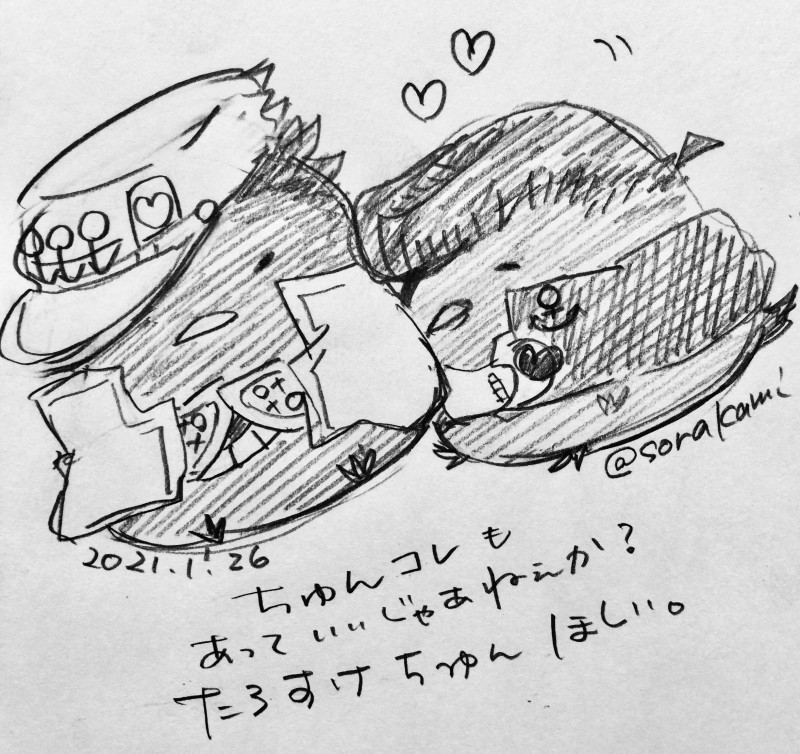 @sorakami
2021.1.26
ちゅんコレも
あっていいじゃあねぇか?
たろすけちゅんほしい。